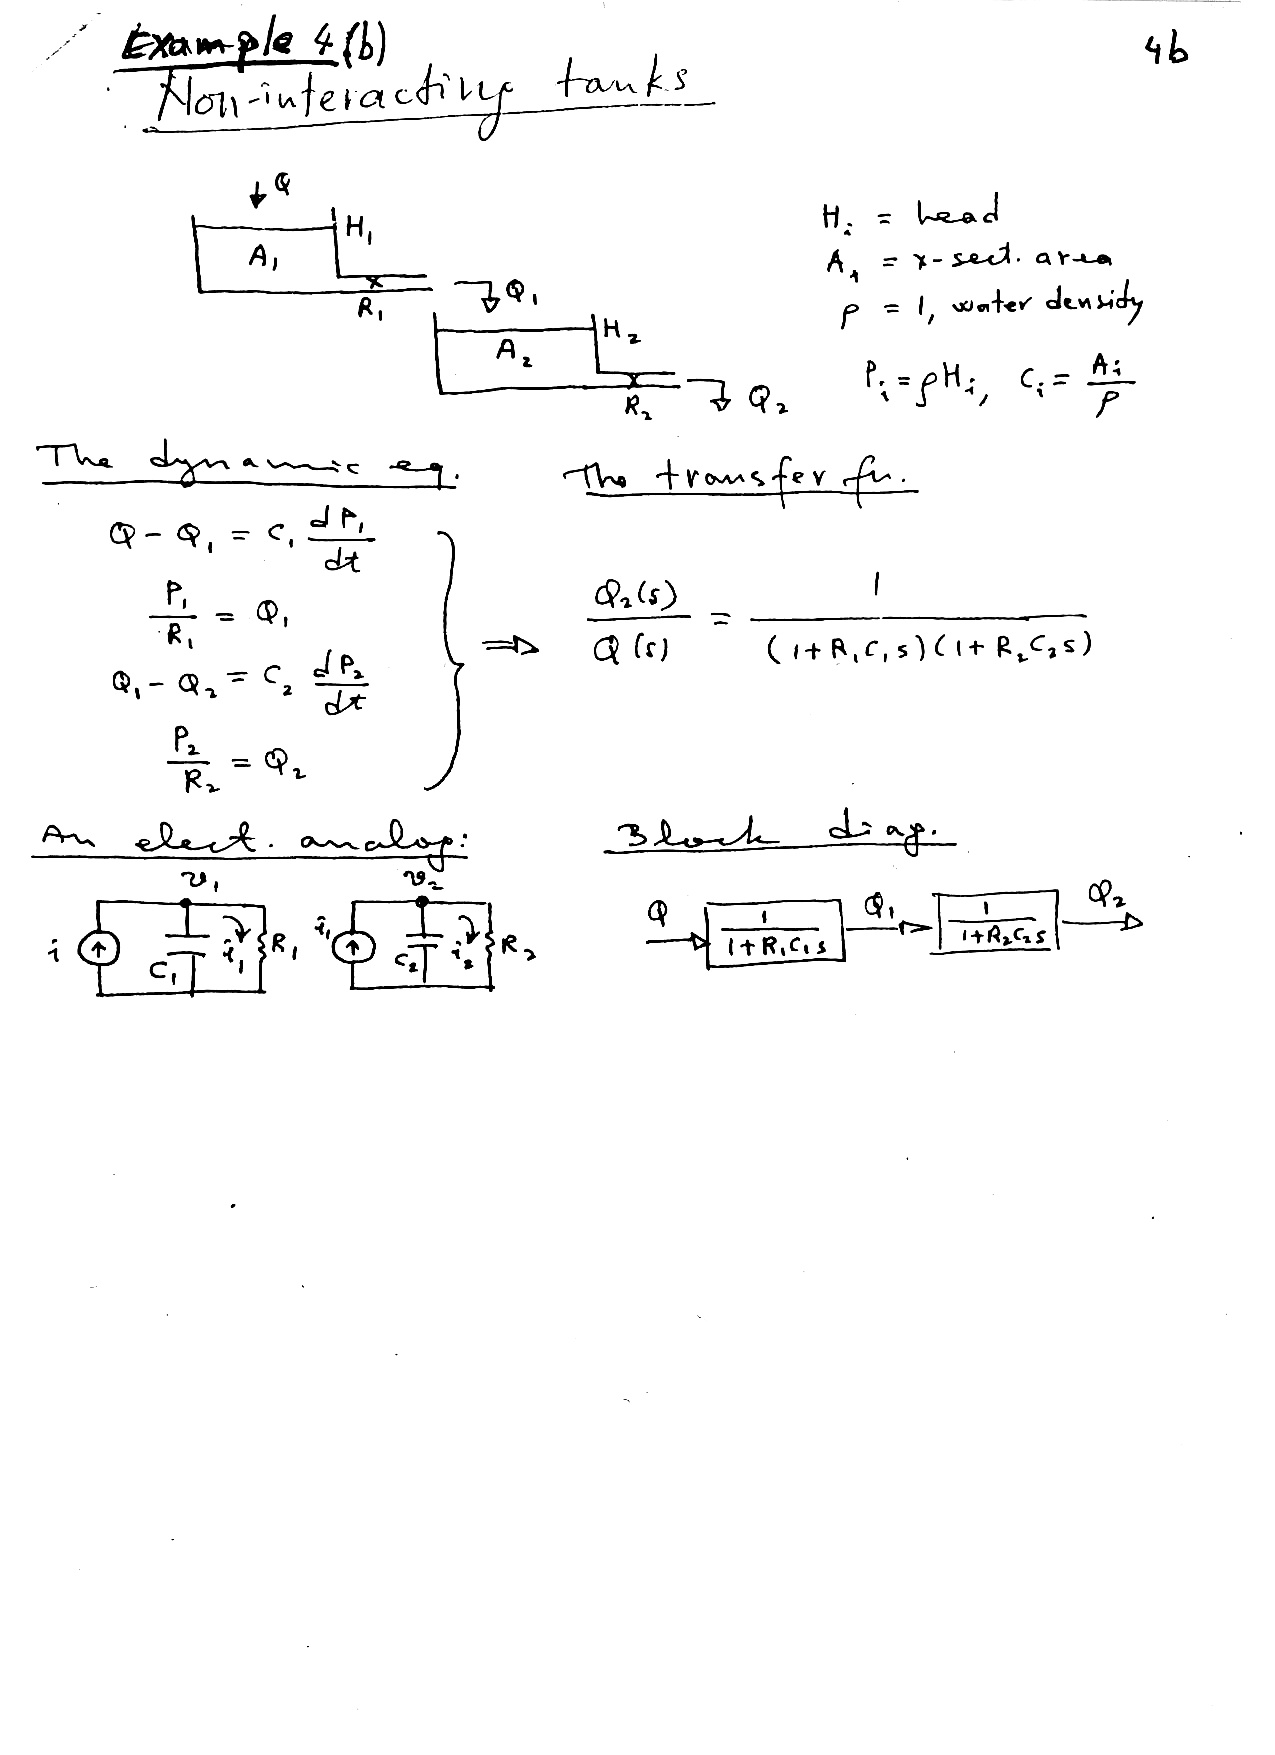 Example 4(b)
4b
Non-interacting tanks
Q
H₁
A₁
R₁
Q₁
H₂
A₂
R₂
Q₂
Hᵢ = head
A₁ = x-sect. area
ρ = 1, water density
Pᵢ = ρHᵢ, Cᵢ = Aᵢ/ρ
The dynamic eq.
Q - Q₁ = C₁ dP₁/dt
P₁/R₁ = Q₁
Q₁ - Q₂ = C₂ dP₂/dt
P₂/R₂ = Q₂
The transfer fu.
⇒ Q₂(s)/Q(s) = 1/((1+R₁C₁s)(1+R₂C₂s))
An elect. analog:
v₁
i
C₁
i₁
R₁
v₂
i₁
C₂
i₂
R₂
Block diag.
Q
1/(1+R₁C₁s)
Q₁
1/(1+R₂C₂s)
Q₂